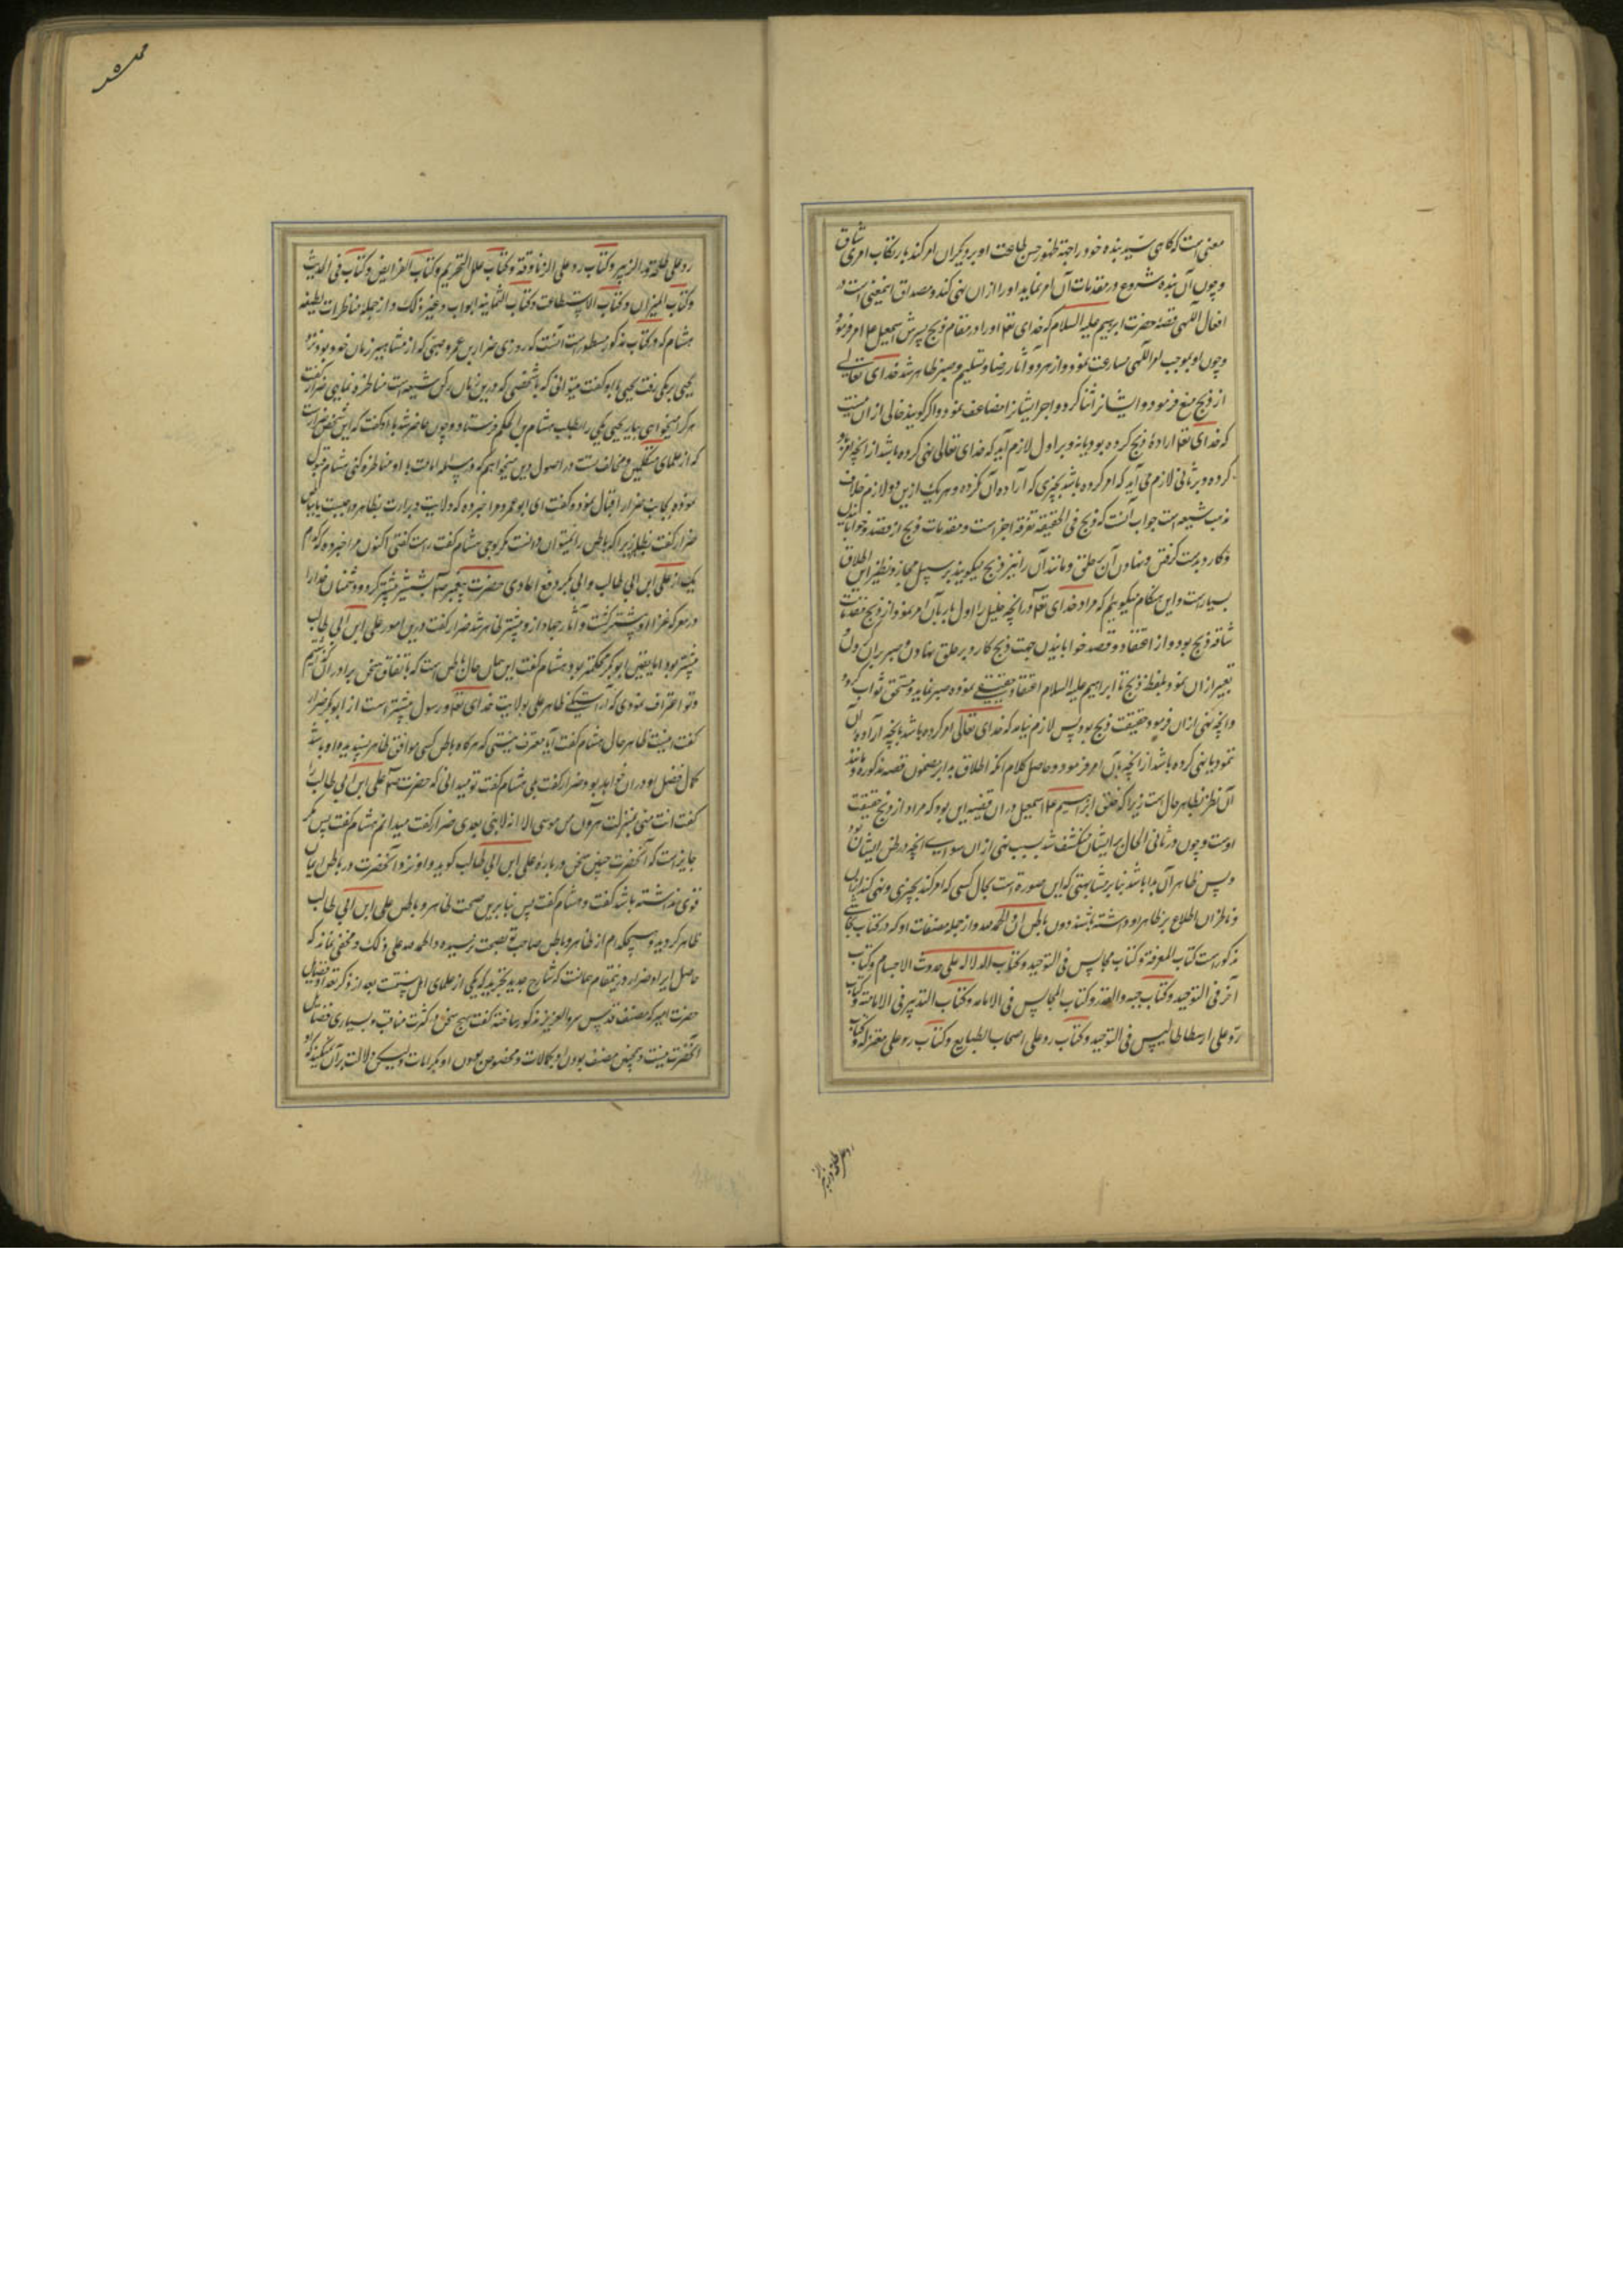 معنی است که گاهی سید بنده خود را جهة ظهور حسن طاعت او بر دیگران امر کند بارتکاب امری شاق
و چون آن بنده شروع در مقدمات آن امر نماید او را از آن نهی کند و مصداق اینمعنی است در
افعال الهی قصهٔ حضرت ابراهیم علیه السلام که خدای تعا او را در مقام ذبح پسرش اسمعیل ع امر فرمود
و چون او بموجب امر الهی مسارعت نمود و از هر دو آثار رضا و تسلیم و صبر ظاهر شد خدای تعالی
از ذبح منع فرمود و ایشانرا ثنا کرد و اجر ایشانرا مضاعف نمود و اگر گویند خالی از آن نیست
که خدای تعا ارادهٔ ذبح کرده بود یا نه و بر اول لازم آید که خدای تعالی نهی کرده باشد از آنچه امر باو
کرده و بر ثانی لازم می آید که امر کرده باشد بچیزی که اراده آن نکرده و هر یک ازین دو لازم خلاف
مذهب شیعه است جواب آنست که ذبح فی الحقیقه تفرقه اجزا است و مقدمات ذبح از قصد و خوابانیدن
و کارد بدست گرفتن و نهادن آن بر حلق و مانند آن را نیز ذبح میگویند بر سبیل مجاز و نظیر این اطلاق
بسیار است و این هنگام میگوییم که مراد خدای تعا در آنچه خلیل را اول بار بآن امر نمود از ذبح مقدمات
شاقه ذبح بود از اعتقاد و قصد خوابانیدن جهت ذبح و کارد بر حلق نهادن و صبر بر آن کردن و
تعبیر از آن نمود بلفظ ذبح تا ابراهیم علیه السلام اعتقاد حقیقی نموده صبر نماید و مستحق ثواب گردد
و آنچه نهی از آن فرمود حقیقت ذبح بود پس لازم نیامد که خدای تعالی امر کرده باشد بآنچه اراده آن
ننمود یا نهی کرده باشد از آنچه بآن امر فرمود و حاصل کلام آنکه اطلاق بدا بر مضمون قصه مذکوره و مانند
آن نظر بظاهر حال است زیرا که ظن ابراهیم ع و اسمعیل در آن قضیه این بود که مراد از ذبح حقیقت
اوست و چون در ثانی الحال بر ایشان منکشف شد بسبب نهی از آن سوای آنچه در ظن ایشان بود
و پس ظاهر آن بدا باشد بنا بر مشابهتی که این صورة است بحال کسی که امر کند بچیزی و نهی کند از آن
و ناظران اطلاع بر ظاهر او داشته باشند دون باطن او و الحمد لله و از جمله مصنفات او که در کتاب نجاشی
مذکور است کتاب المعرفة و کتاب مجالس فی التوحید و کتاب الدلاله علی حدوث الاجسام و کتاب
آخر فی التوحید و کتاب جبر و القدر و کتاب المجالس فی الامامه و کتاب التدبیر فی الامامة و کتاب
رد علی ارسطاطالیس فی التوحید و کتاب رد علی اصحاب الطبایع و کتاب رد علی معتزله و کتاب
رد علی طلحة و الزبیر
رد علی طلحة و الزبیر و کتاب رد علی الزنادقة و کتاب علل التحریم و کتاب الفرایض و کتاب فی الحدیث
و کتاب المیزان و کتاب الاستطاعت و کتاب الثمانیه ابواب و غیر ذلک و از جمله مناظرات لطیفه
هشام که در کتاب مذکور مسطور است آنست که روزی ضرار بن عمرو ضبی که از مشاهیر زمان خود بود نزد
یحیی برمکی رفت یحیی باو گفت میتوانی که با شخصی که درین زمان رکن شیعه است مناظره نمایی ضرار گفت
هر کرا میخواهی بیار یحیی یکی را بطلب هشام بن الحکم فرستاد و چون حاضر شد باو گفت که این شخص ضرار است
که از علمای متکلمین و مخالف تست در اصول دین میخواهم که در مسئله امامت با او مناظره کنی هشام قبول
نموده بجانب ضرار اقبال نمود و گفت ای ابو عمرو مرا خبر ده که ولایت و برات بظاهر واجبست یا بباطن
ضرار گفت بظاهر زیرا که باطن را نمیتوان دانست مگر بوحی هشام گفت راست گفتی اکنون مرا خبر ده که کدام
یک از علی ابن ابی طالب و ابی بکر دفع اعادی حضرت پیغمبر ص بشمشیر بیشتر کرد و دشمنان خدا را
در معرکه غزا او بیشتر کشت و آثار جهاد از و بیشتر ظاهر شد ضرار گفت درین امور علی ابن ابی طالب
بیشتر بود اما یقین ابوبکر محکمتر بود هشام گفت این حال باطن است که باتفاق سخن بر آوردن آن کردیم
و تو اعتراف نمودی که آراستگی ظاهر علی بولایت خدای تعا و رسول بیشتر است از ابوبکر ضرار
گفت اینست ظاهر حال هشام گفت آیا معترف نیستی که هرگاه باطن کسی موافق ظاهر پسندیده او باشد
کمال فضل او در آن خواهد بود ضرار گفت بلی هشام گفت تو میدانی که حضرت ص علی ابن ابی طالب را
گفت انت منی بمنزلت هرون من موسی الا انه لا نبی بعدی ضرار گفت میدانم هشام گفت پس مگر
جایز است که آنحضرت چنین سخن در باره علی ابن ابی طالب گوید و او نزد آنحضرت در باطن ایمان
قوی نداشته باشد گفت نه هشام گفت پس بنا برین صحت ظاهر و باطن علی ابن ابی طالب
ظاهر گردید و هیچکدام از ظاهر و باطن صاحب تو بصحت نرسیده و الحمد لله علی ذلک و مخفی نماند که
حاصل ایراد ضرار درینمقام همانست که شارح جدید تجرید که یکی از علمای اهل سنتست بعد از ذکر تعداد فضایل
حضرت امیر که مصنف قدس سره العزیز مذکور ساخته گفت هیچ سخن در کثرت مناقب و بسیاری فضایل
آنحضرت نیست و همچنین متصف بودن او بکمالات و مخصوص بودن او بکرامات ولیکن دلالت بر آن نمیکند که او